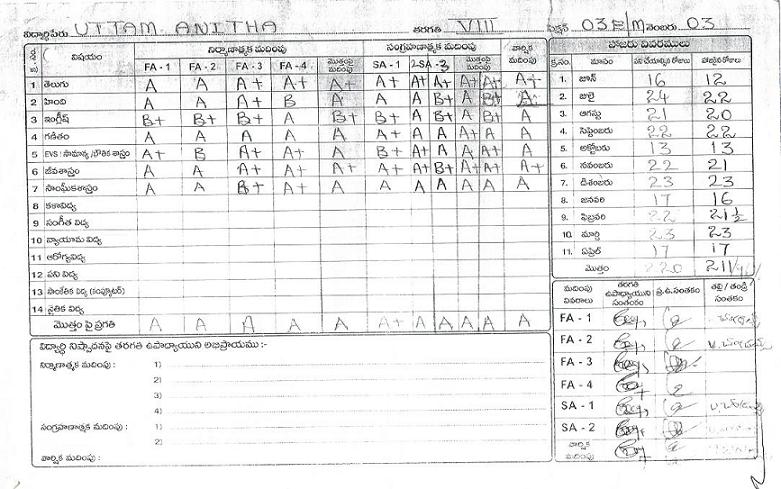 విద్యార్థిపేరు UTTAM ANITHA తరగతి VIII సెక్షన్ 03 E/M నెంబరు 03
క్ర.సం. విషయం నిర్మాణాత్మక మదింపు సంగ్రహణాత్మక మదింపు వార్షిక మదింపు
FA - 1 FA - 2 FA - 3 FA - 4 మొత్తంపై మదింపు SA - 1 SA - 3 మొత్తంపై మదింపు
1 తెలుగు A A A+ A+ A+ A+ A+ A+ A+ A+ A+
2 హింది A A A+ B A A A B+ A B+ A
3 ఇంగ్లీష్ B+ B+ B+ A B+ B+ A B+ A B+ A
4 గణితం A A A A A A A A A+ A A
5 EVS / సామాన్య /భౌతిక శాస్త్రం A+ B A+ A+ A B+ A+ A A+ A A
6 జీవశాస్త్రం A A A+ A+ A+ A+ A+ B+ A+ A+ A+
7 సాంఘీకశాస్త్రం A A B+ A+ A A A A A A A
8 కళావిద్య
9 సంగీత విద్య
10 వ్యాయామ విద్య
11 ఆరోగ్యవిద్య
12 పని విద్య
13 సాంకేతిక విద్య (కంప్యూటర్)
14 నైతిక విద్య
మొత్తం పై ప్రగతి A A A A A A+ A A A A A
హాజరు వివరములు
క్ర.సం. మాసం పనిచేయాల్సిన రోజులు హాజరైన రోజులు
1. జూన్ 16 12
2. జులై 24 22
3. ఆగస్టు 21 20
4. సెప్టెంబరు 22 22
5. అక్టోబరు 13 13
6. నవంబరు 22 21
7. డిశంబరు 23 23
8. జనవరి 17 16
9. ఫిబ్రవరి 22 21½
10. మార్చి 23 23
11. ఏప్రిల్ 17 17
మొత్తం 220 211
మదింపు వివరాలు తరగతి ఉపాధ్యాయుని సంతకం ప్ర.ఉ.సంతకం తల్లి / తండ్రి సంతకం
FA - 1
FA - 2
FA - 3
FA - 4
SA - 1
SA - 2
వార్షిక మదింపు
విద్యార్థి నిష్పాదనపై తరగతి ఉపాధ్యాయుని అభిప్రాయము :-
నిర్మాణాత్మక మదింపు : 1)
2)
3)
4)
సంగ్రహణాత్మక మదింపు : 1)
2)
వార్షిక మదింపు :